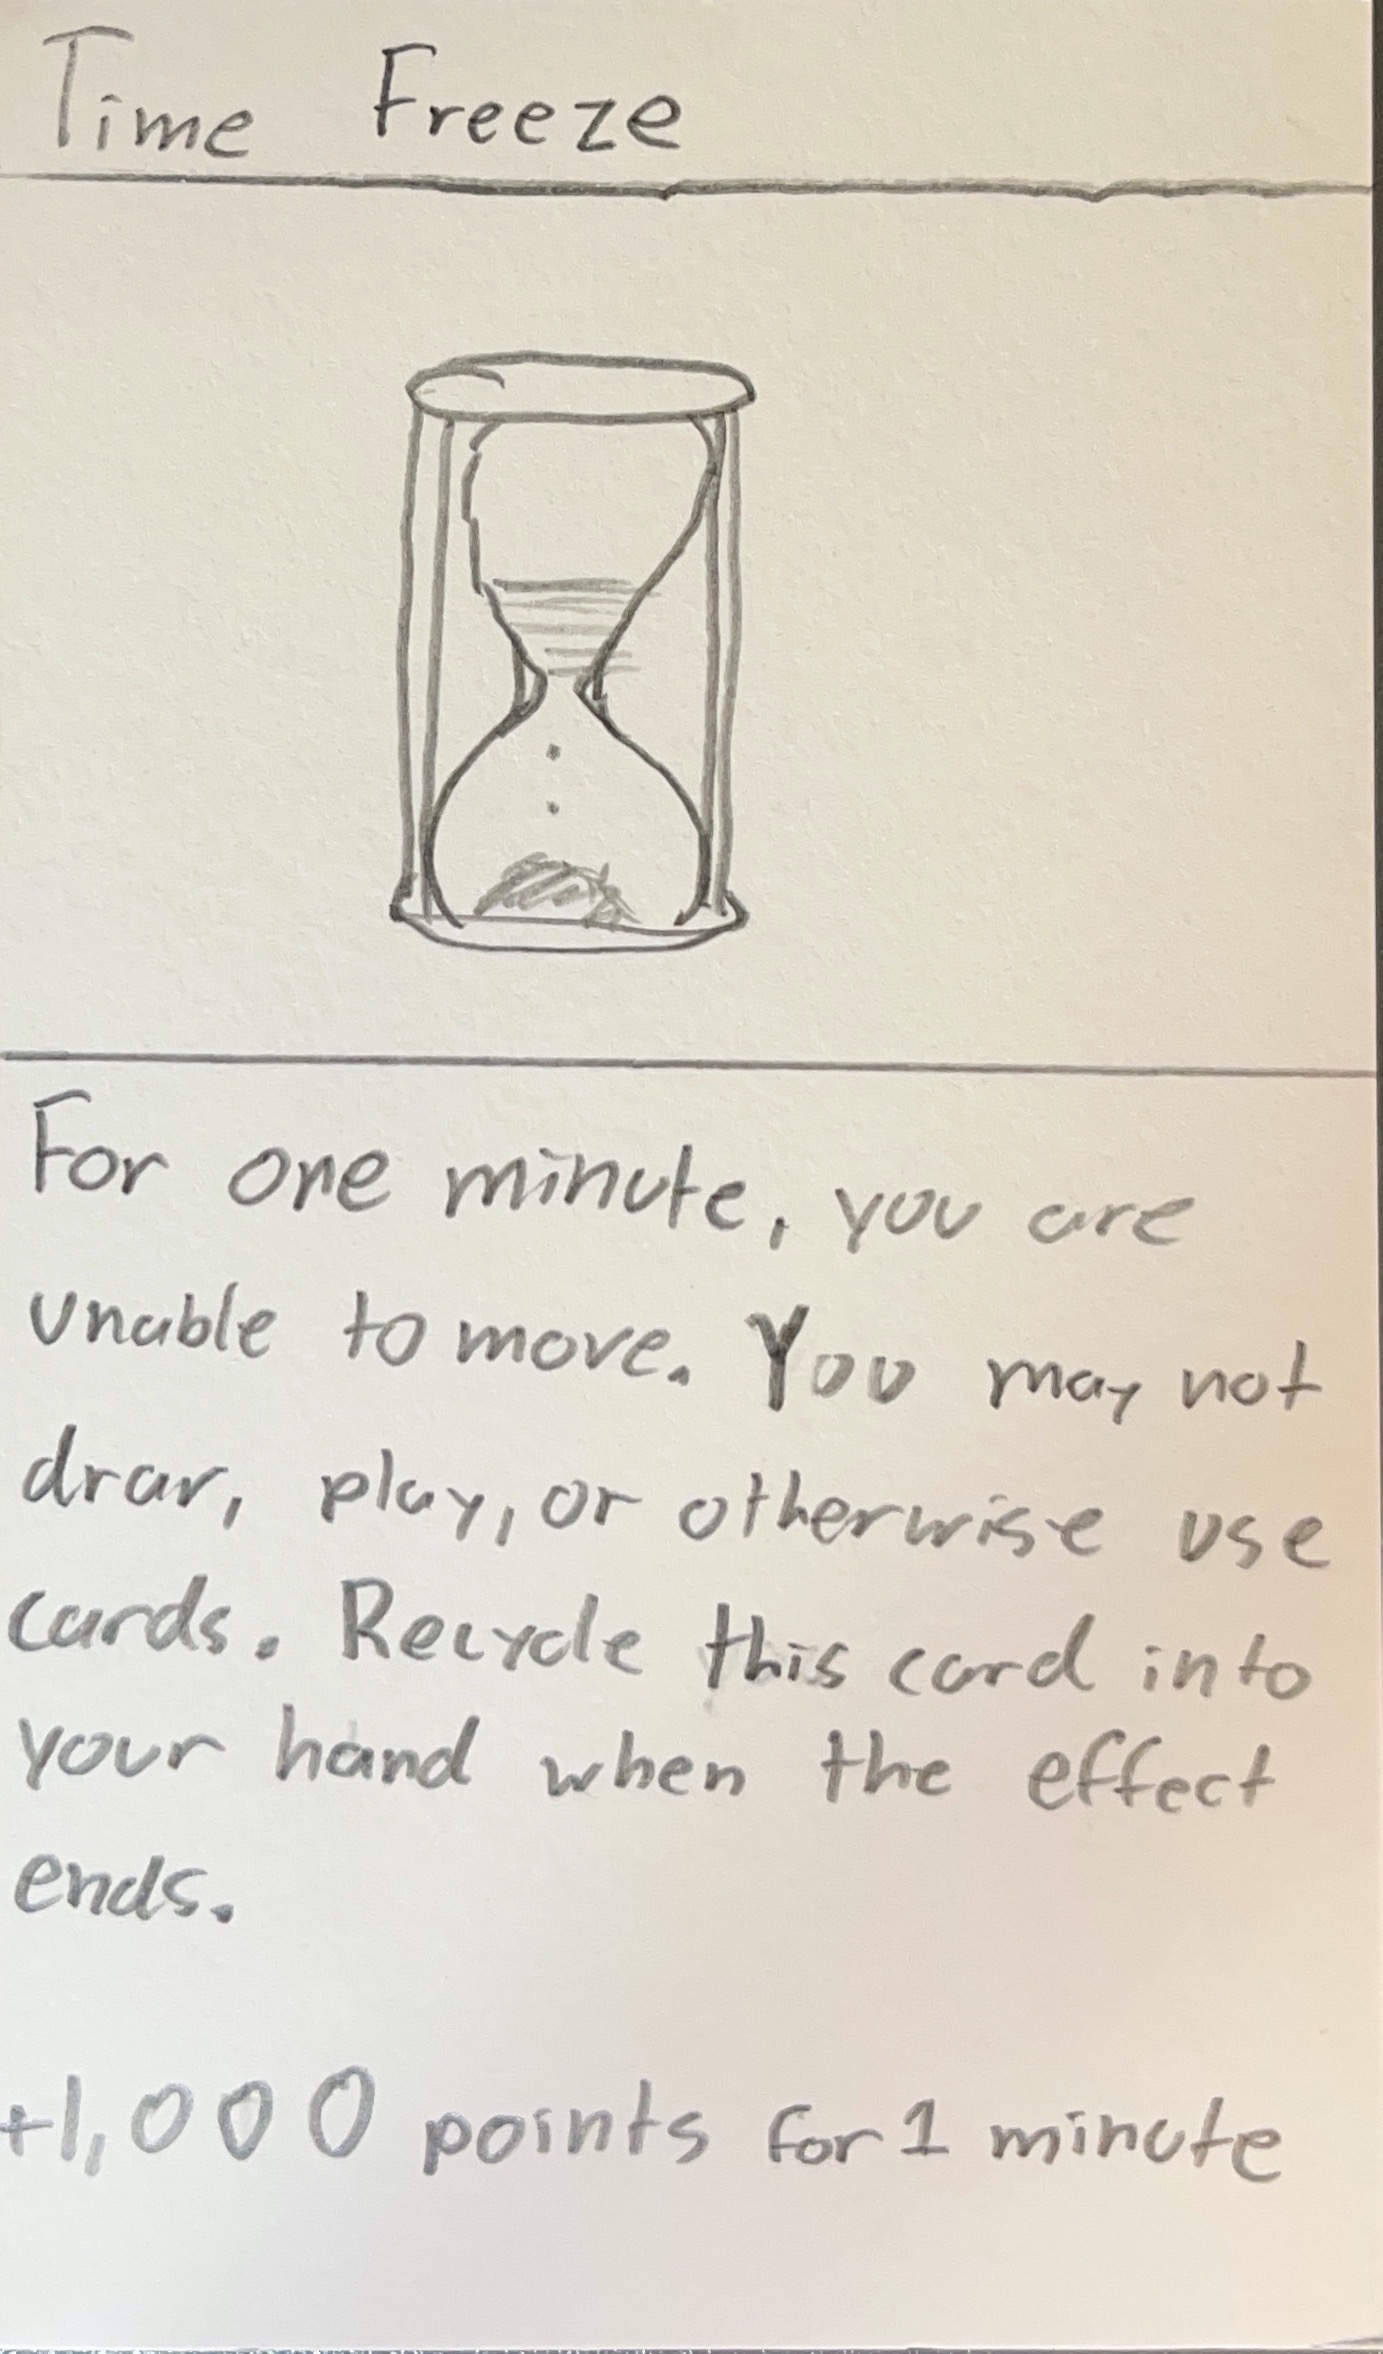 Time Freeze
For one minute, you are
unable to move. You may not
draw, play, or otherwise use
cards. Recycle this card into
your hand when the effect
ends.
+1,000 points for 1 minute